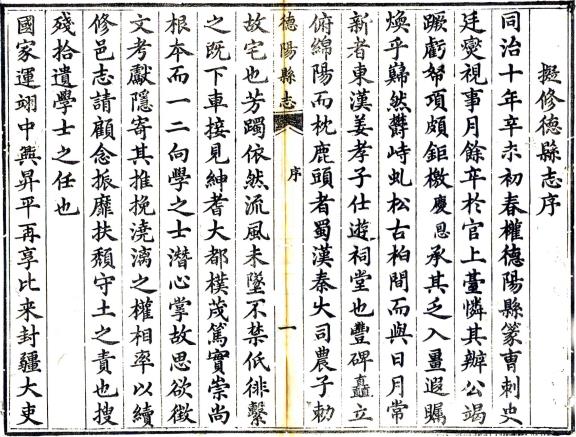 擬修德縣志序
同治十年辛未初春權德陽縣篆曹刺史
廷燮視事月餘卒於官上臺憐其辦公竭
蹶虧帑項頗鉅檄慶恩承其乏入畺遐矚
煥乎巋然欝峙虬松古柏間而與日月常
新者東漢姜孝子仕遊祠堂也豐碑矗立
俯綿陽而枕鹿頭者蜀漢秦大司農子勑
德陽縣志
序
一
故宅也芳躅依然流風未墜不禁低徘繫
之既下車接見紳耆大都樸茂篤實崇尚
根本而一二向學之士潛心掌故思欲徵
文考獻隱寄其推挽澆漓之權相率以續
修邑志請顧念振靡扶頹守土之責也搜
殘拾遺學士之任也
國家運翊中興昇平再享比来封疆大吏